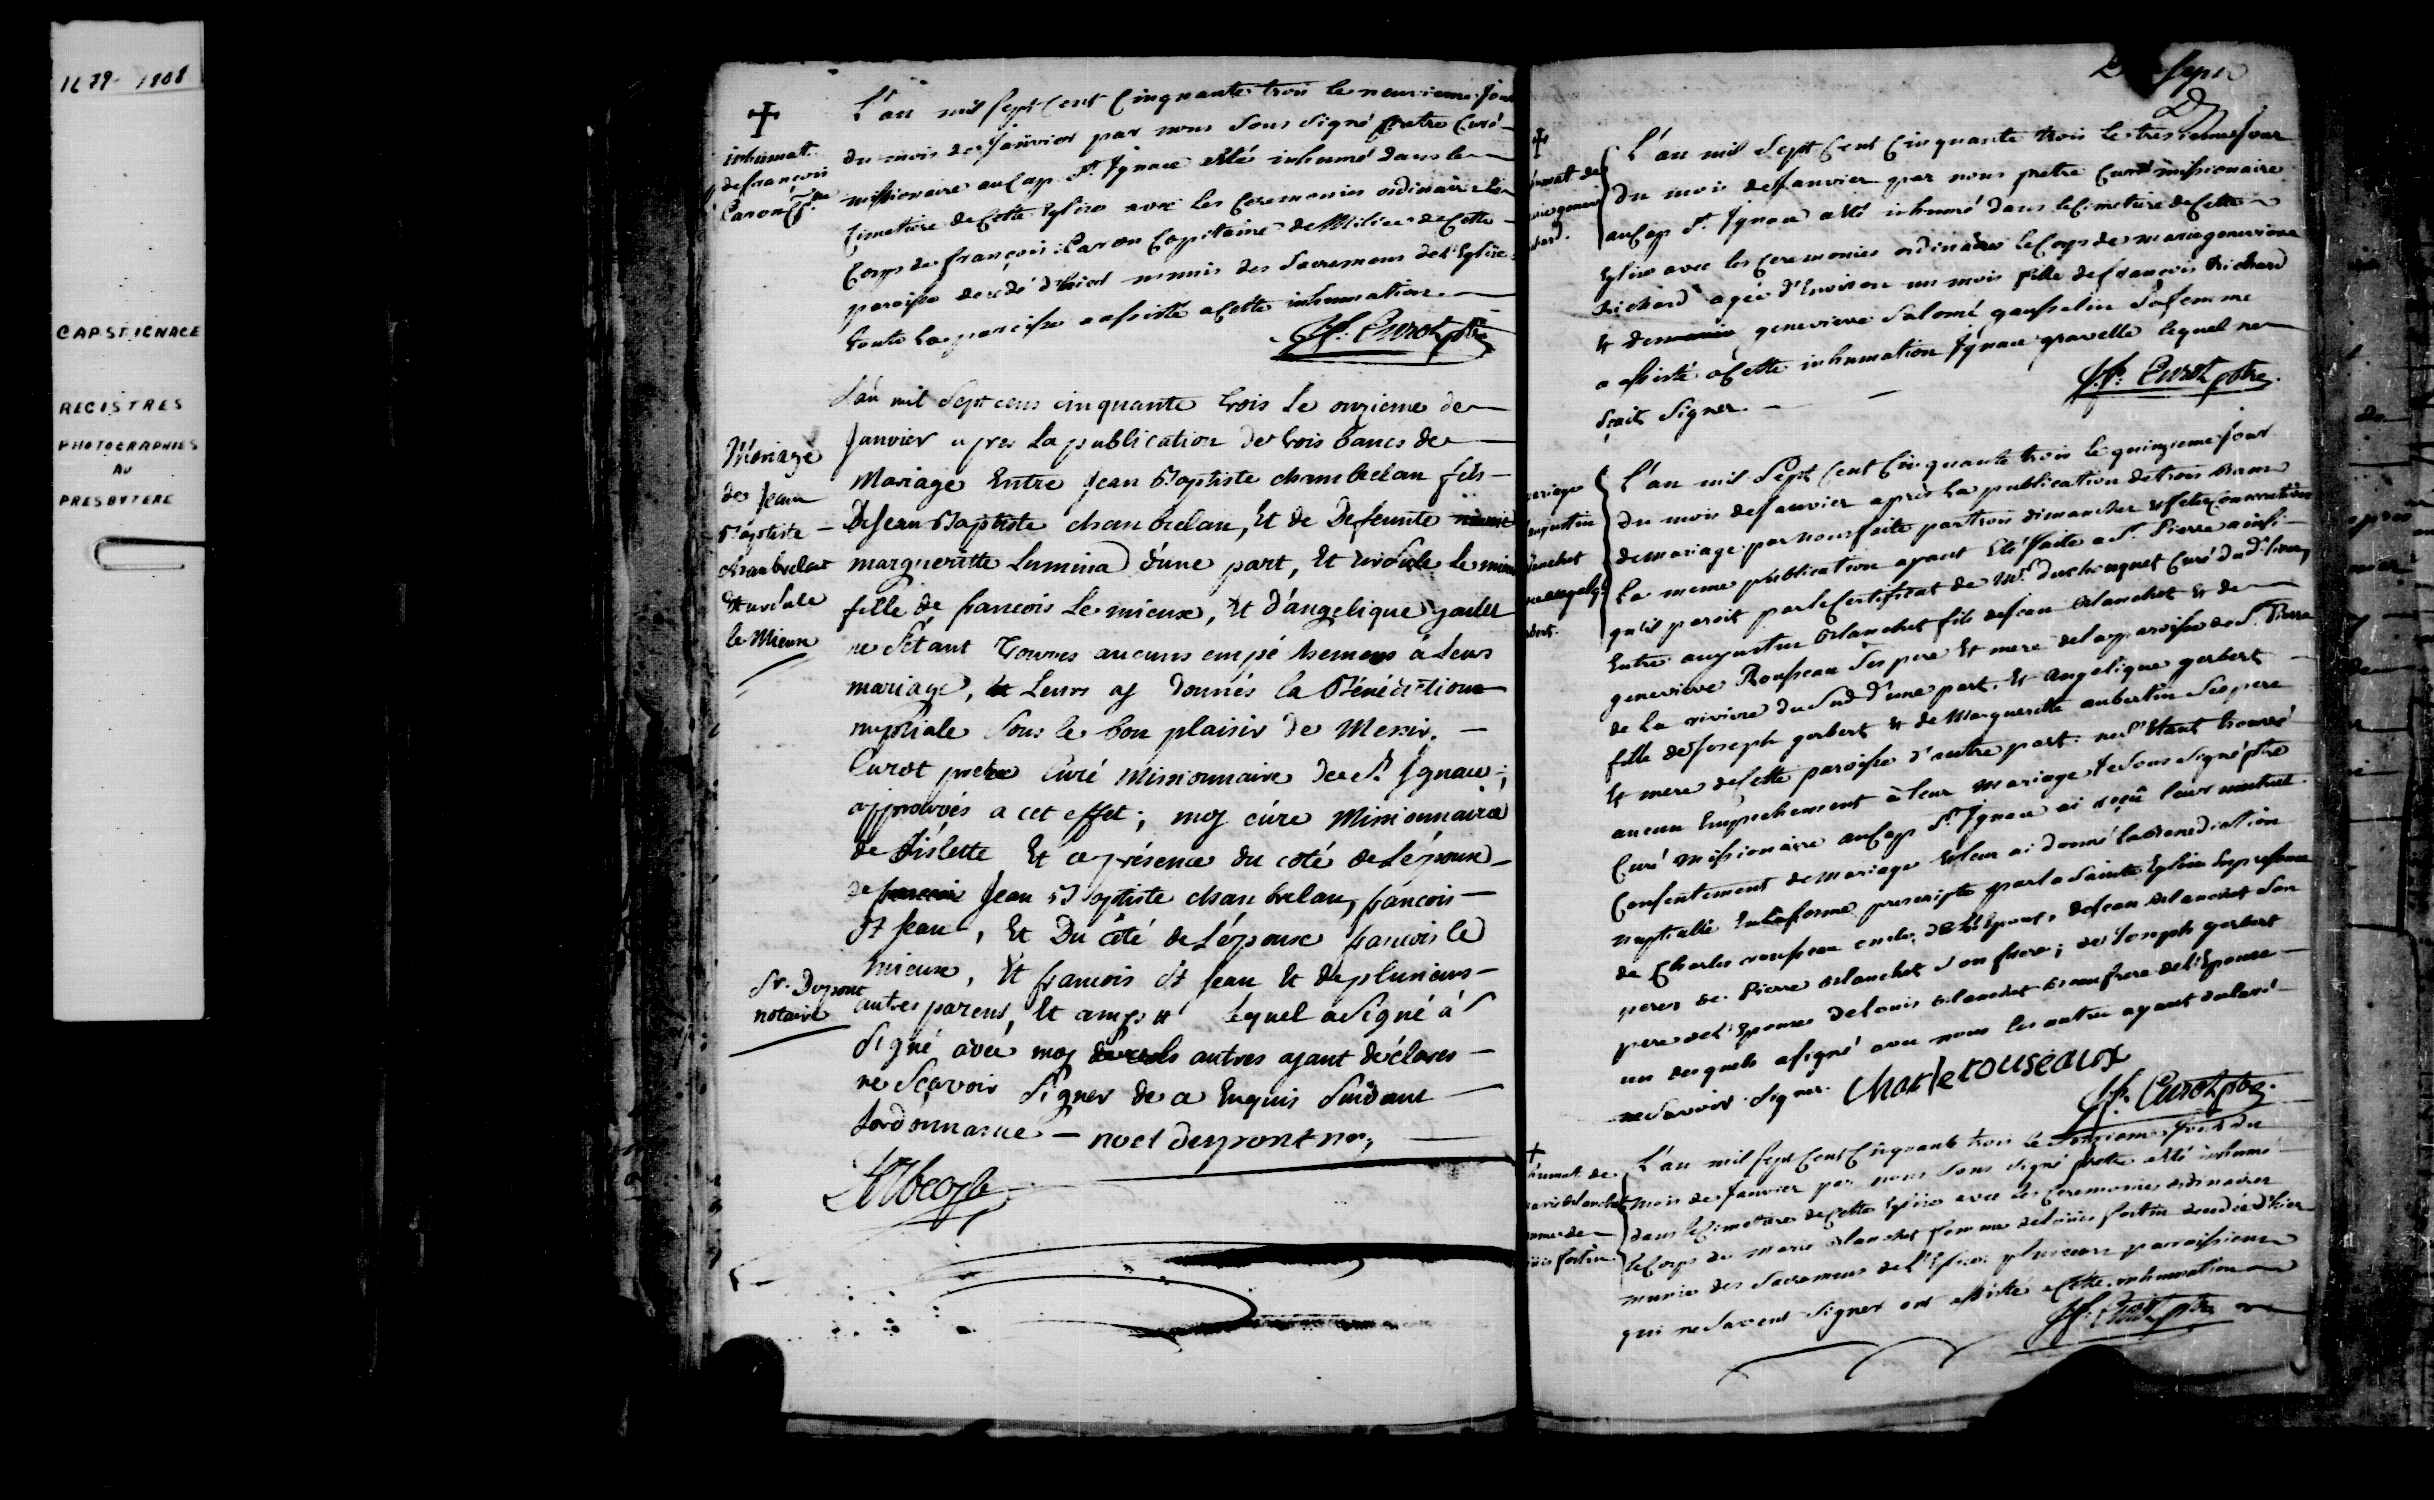 1679-1808
CAP ST IGNACE
REGISTRES
PHOTOGRAPHIES
AU
PRESBYTERE
inhumat.
de françois
Caron Cp.ne
L'an mil sept Cent Cinquante trois le neuvieme Jour
du mois de Janvier par nous sous signé pretre Curé
missionaire au Cap St. Ignace a Eté inhumé dans le
Cimetiere de Cette Eglise avec les Ceremonies ordinaires le
Corps de françois Caron Capitaine de Milice de Cette
paroisse decedé d'hier munis des Sacremens de l'Eglise
toute La paroisse a assisté a Cette inhumation.
Curot ptre
Mariage
de Jean
Baptiste
chambrelan
Et ursule
le Mieux
L'an mil Sept cens cinquante trois Le onzieme de
Janvier apres La publication de trois bancs de
Mariage Entre Jean Baptiste chambrelan fils
De Jean Baptiste chanbrelan, Et de Defeunte
margueritte Lumina d'une part, Et ursule Le mieux
fille de francois Le mieux, Et d'angelique
ne S'étant Trouves aucuns empéchemens à Leurs
mariage, Leurs ay donnés la Bénédiction
nuptiale Sous le bon plaisir de Messir.
Curot pretre Curé Missionnaire de St Ignace;
approuvés a cet effet; moy cúre Missionnaire
de L'islette Et ce présence du coté de L'époux
de Jean Baptiste chanbrelan, francois
St Jean, Et Du côté de L'épouse francois le
mieux, Et francois St Jean Et de plusieurs
Sr. Dupont
notaire
autres parens, Et amys Lequel a Signé á
Signé avec moy autres ayant déclares
ne Sçavoir Signer de ce Enquis Suivant
Lordonnance — noel dupont no,
L'an mil Sept Cent Cinquante trois le tresieme Jour
du mois de Janvier par nous pretre Curé missionaire
au Cap St. Ignace a Eté inhumé dans le Cimetiere de Cette
Eglise avec les ceremonies ordinaires le Corps de marie genevieve
Richard agée d'Environ un mois fille de francois Richard
Et de genevieve Salomé gausselin Sa femme
a assisté a Cette inhumation Ignace gravelle lequel ne
Sçait Signer.
Curot ptre
L'an mil Sept Cent Cinquante trois le quinzieme Jour
du mois de Janvier après La publication de trois Bans
de mariage par nous faite par trois dimanches et fetes Consecutives
La meme publication ayant Eté faite a St. Pierre ainsi
qu'il paroit par le Certificat de Mr. duchouquet Curé du d. lieu,
Entre augustin Blanchet fils de Jean Blanchet Et de
genevieve Rousseau Ses pere Et mere de la paroisse de St. Pierre
de La riviere du Sud d'une part. Et Angelique gerbert
fille de Joseph gerbert Et de Marguerite aubertin Ses pere
Et mere de Cette paroisse d'autre part. ne S'Etant trouvé
aucun Empechement à leur mariage Je Sous Signé ptre
Curé missionaire au Cap St. Ignace ai reçû leur mutuel
Consentement de mariage Et leur ai donné la Benediction
nuptialle En la forme prescripte par la Sainte Eglise En presence
de Charles rousseau oncle de l'Epoux, de Jean Blanchet Son
pere, de Pierre Blanchet Son frere; de Joseph gerbert
pere de l'Epouse de Louis Blanchet frere de l'Epouse
un desquels a signé avec nous les autres ayant declaré
ne Savoir Signer. Charle rouseaux
Curot ptre
L'an mil sept Cent Cinquante trois le Jour du
mois de Janvier par nous Sous Signé Pretre a Eté inhumé
dans le Cimetiere de Cette Eglise avec les Ceremonies ordinaires
le Corps de marie Blanchet femme de Louis fortin decedée d'hier
munie des Sacremens de l'Eglise plusieurs parroissiens
qui ne Savent Signer ont assisté a Cette inhumation
Curot ptre